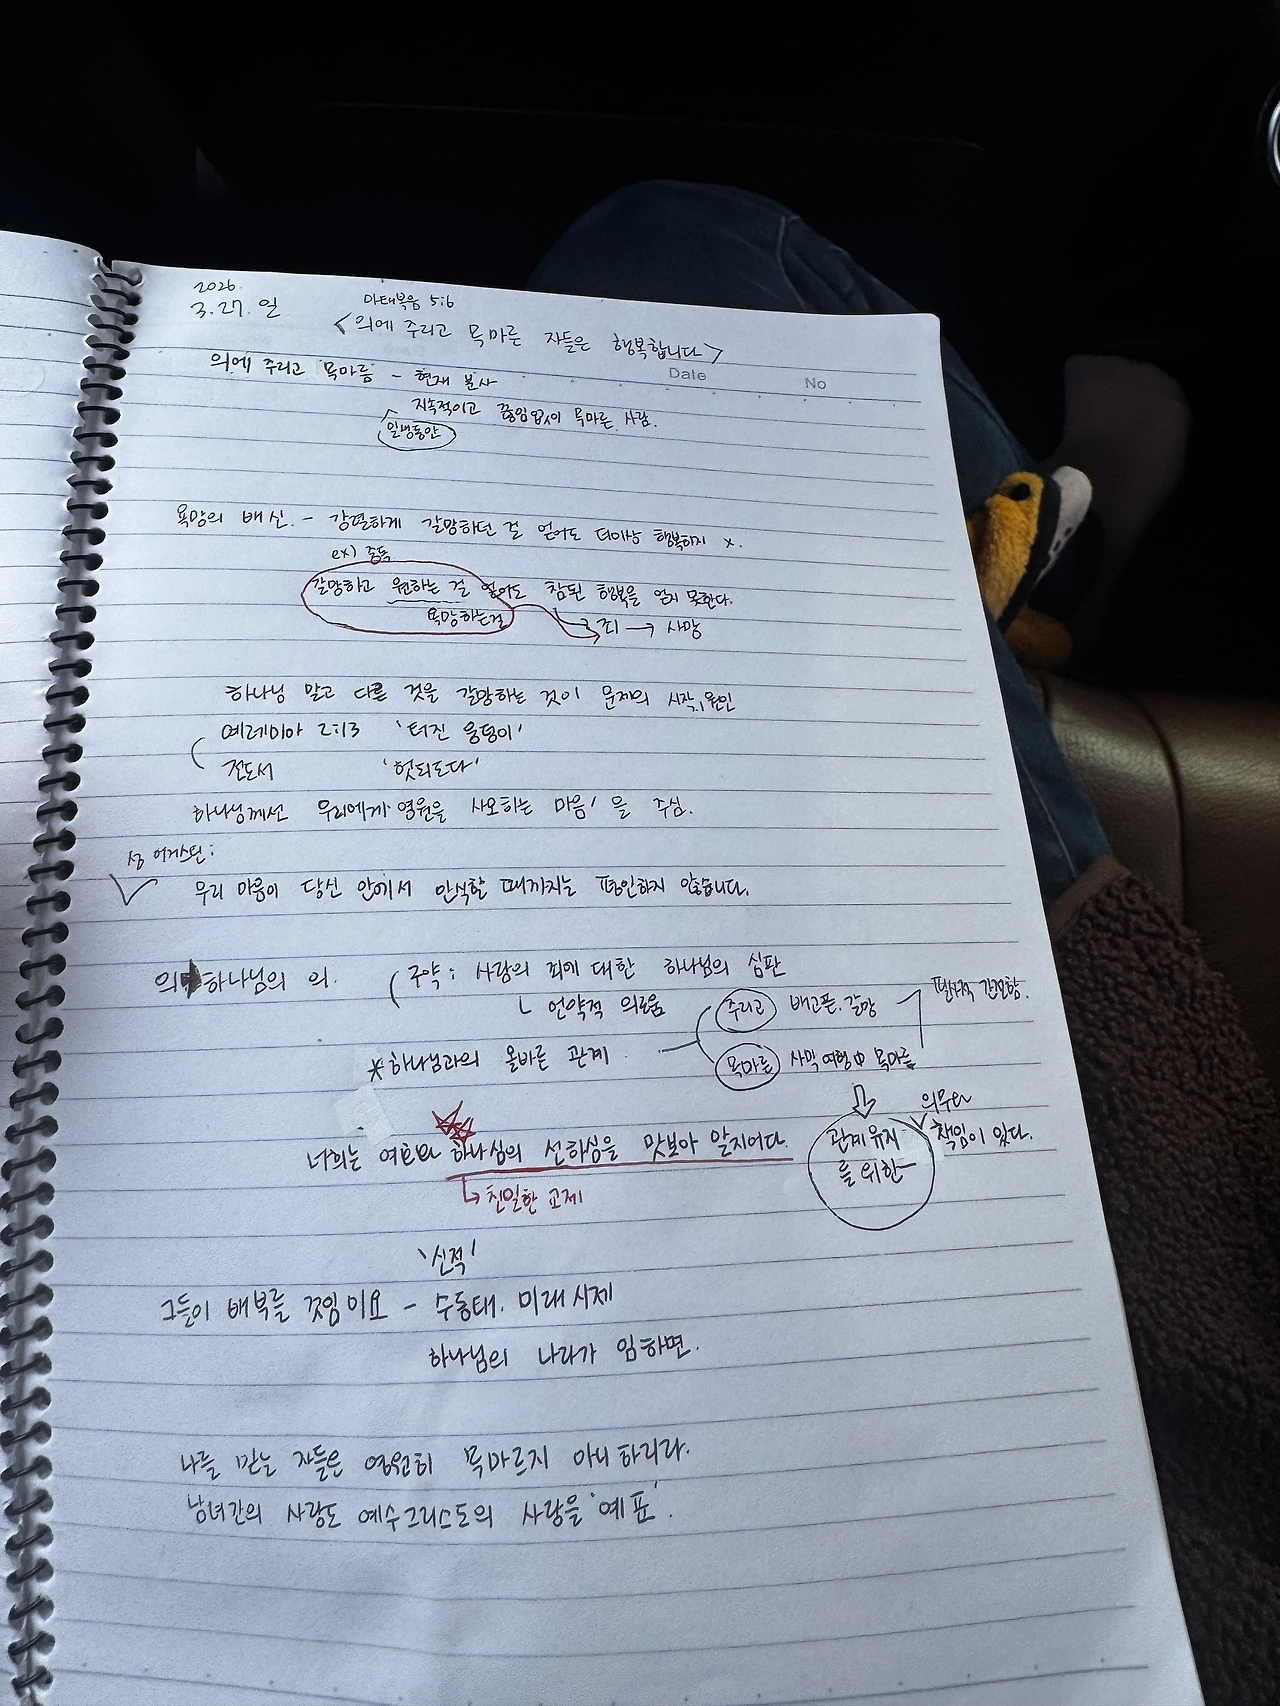 2026.
3.27. 일
마태복음 5:6
<의에 주리고 목마른 자들은 행복합니다>
Date No
의에 주리고 목마름 - 현재 분사
지속적이고 끊임없이 목마른 사람.
일생동안
욕망의 배신. - 강렬하게 갈망하던 걸 얻어도 더이상 행복하지 x.
ex) 중독
갈망하고 원하는 걸 얻어도 참된 행복을 얻지 못한다.
욕망하는걸 → 죄 → 사망
하나님 말고 다른 것을 갈망하는 것이 문제의 시작, 원인
예레미야 2:13 '터진 웅덩이'
전도서 '헛되도다'
하나님께선 우리에게 '영원을 사모하는 마음'을 주심.
성 어거스틴:
우리 마음이 당신 안에서 안식할 때까지는 평안하지 않습니다.
의 하나님의 의. 구약: 사람의 죄에 대한 하나님의 심판
ㄴ 언약적 의로움
주리고 배고픈, 갈망 필사적 간절함.
*하나님과의 올바른 관계
목마름 사막 여행中 목마름
의무와
책임이 있다.
관계 유지
를 위한
너희는 여호와 하나님의 선하심을 맛보아 알지어다.
→ 친밀한 교제
'신적'
그들이 배부를 것임이요 - 수동태. 미래시제
하나님의 나라가 임하면.
나를 믿는 자들은 영원히 목마르지 아니하리라.
남녀간의 사랑도 예수그리스도의 사랑을 '예표'.